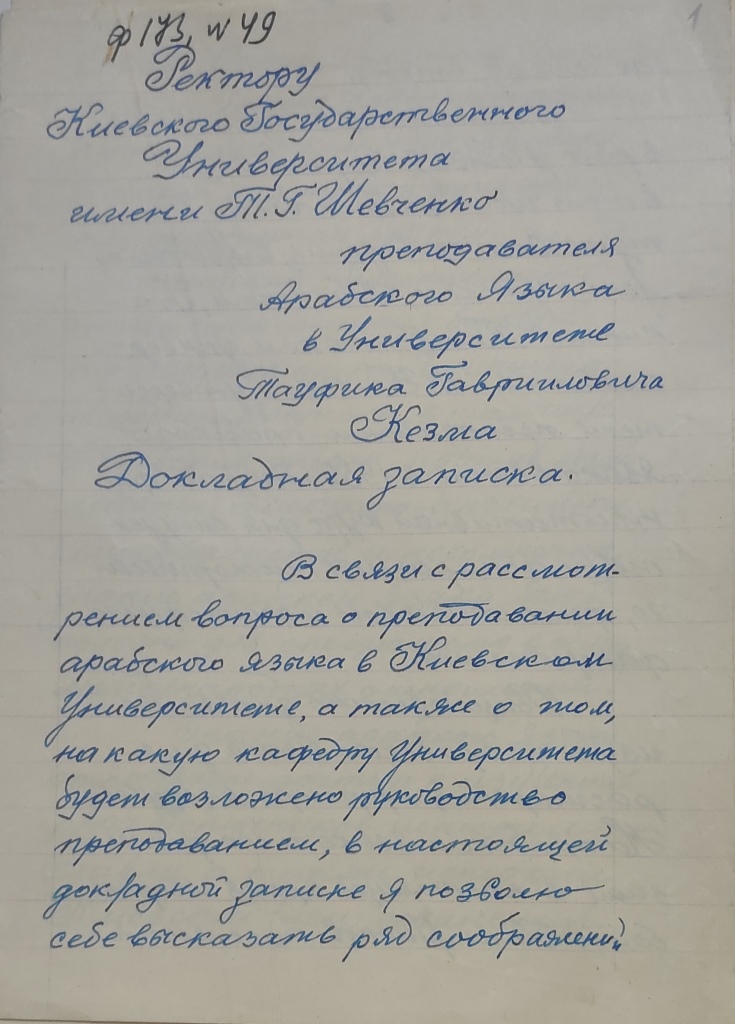 ф 173, № 49
1
Ректору
Киевского Государственного
Университета
имени Т.Г. Шевченко
преподавателя
Арабского Языка
в Университете
Тауфика Гаврииловича
Кезма
Докладная записка.
В связи с рассмот-
рением вопроса о преподавании
арабского языка в Киевском
Университете, а также о том,
на какую кафедру Университета
будет возложено руководство
преподаванием, в настоящей
докладной записке я позволю
себе высказать ряд соображений